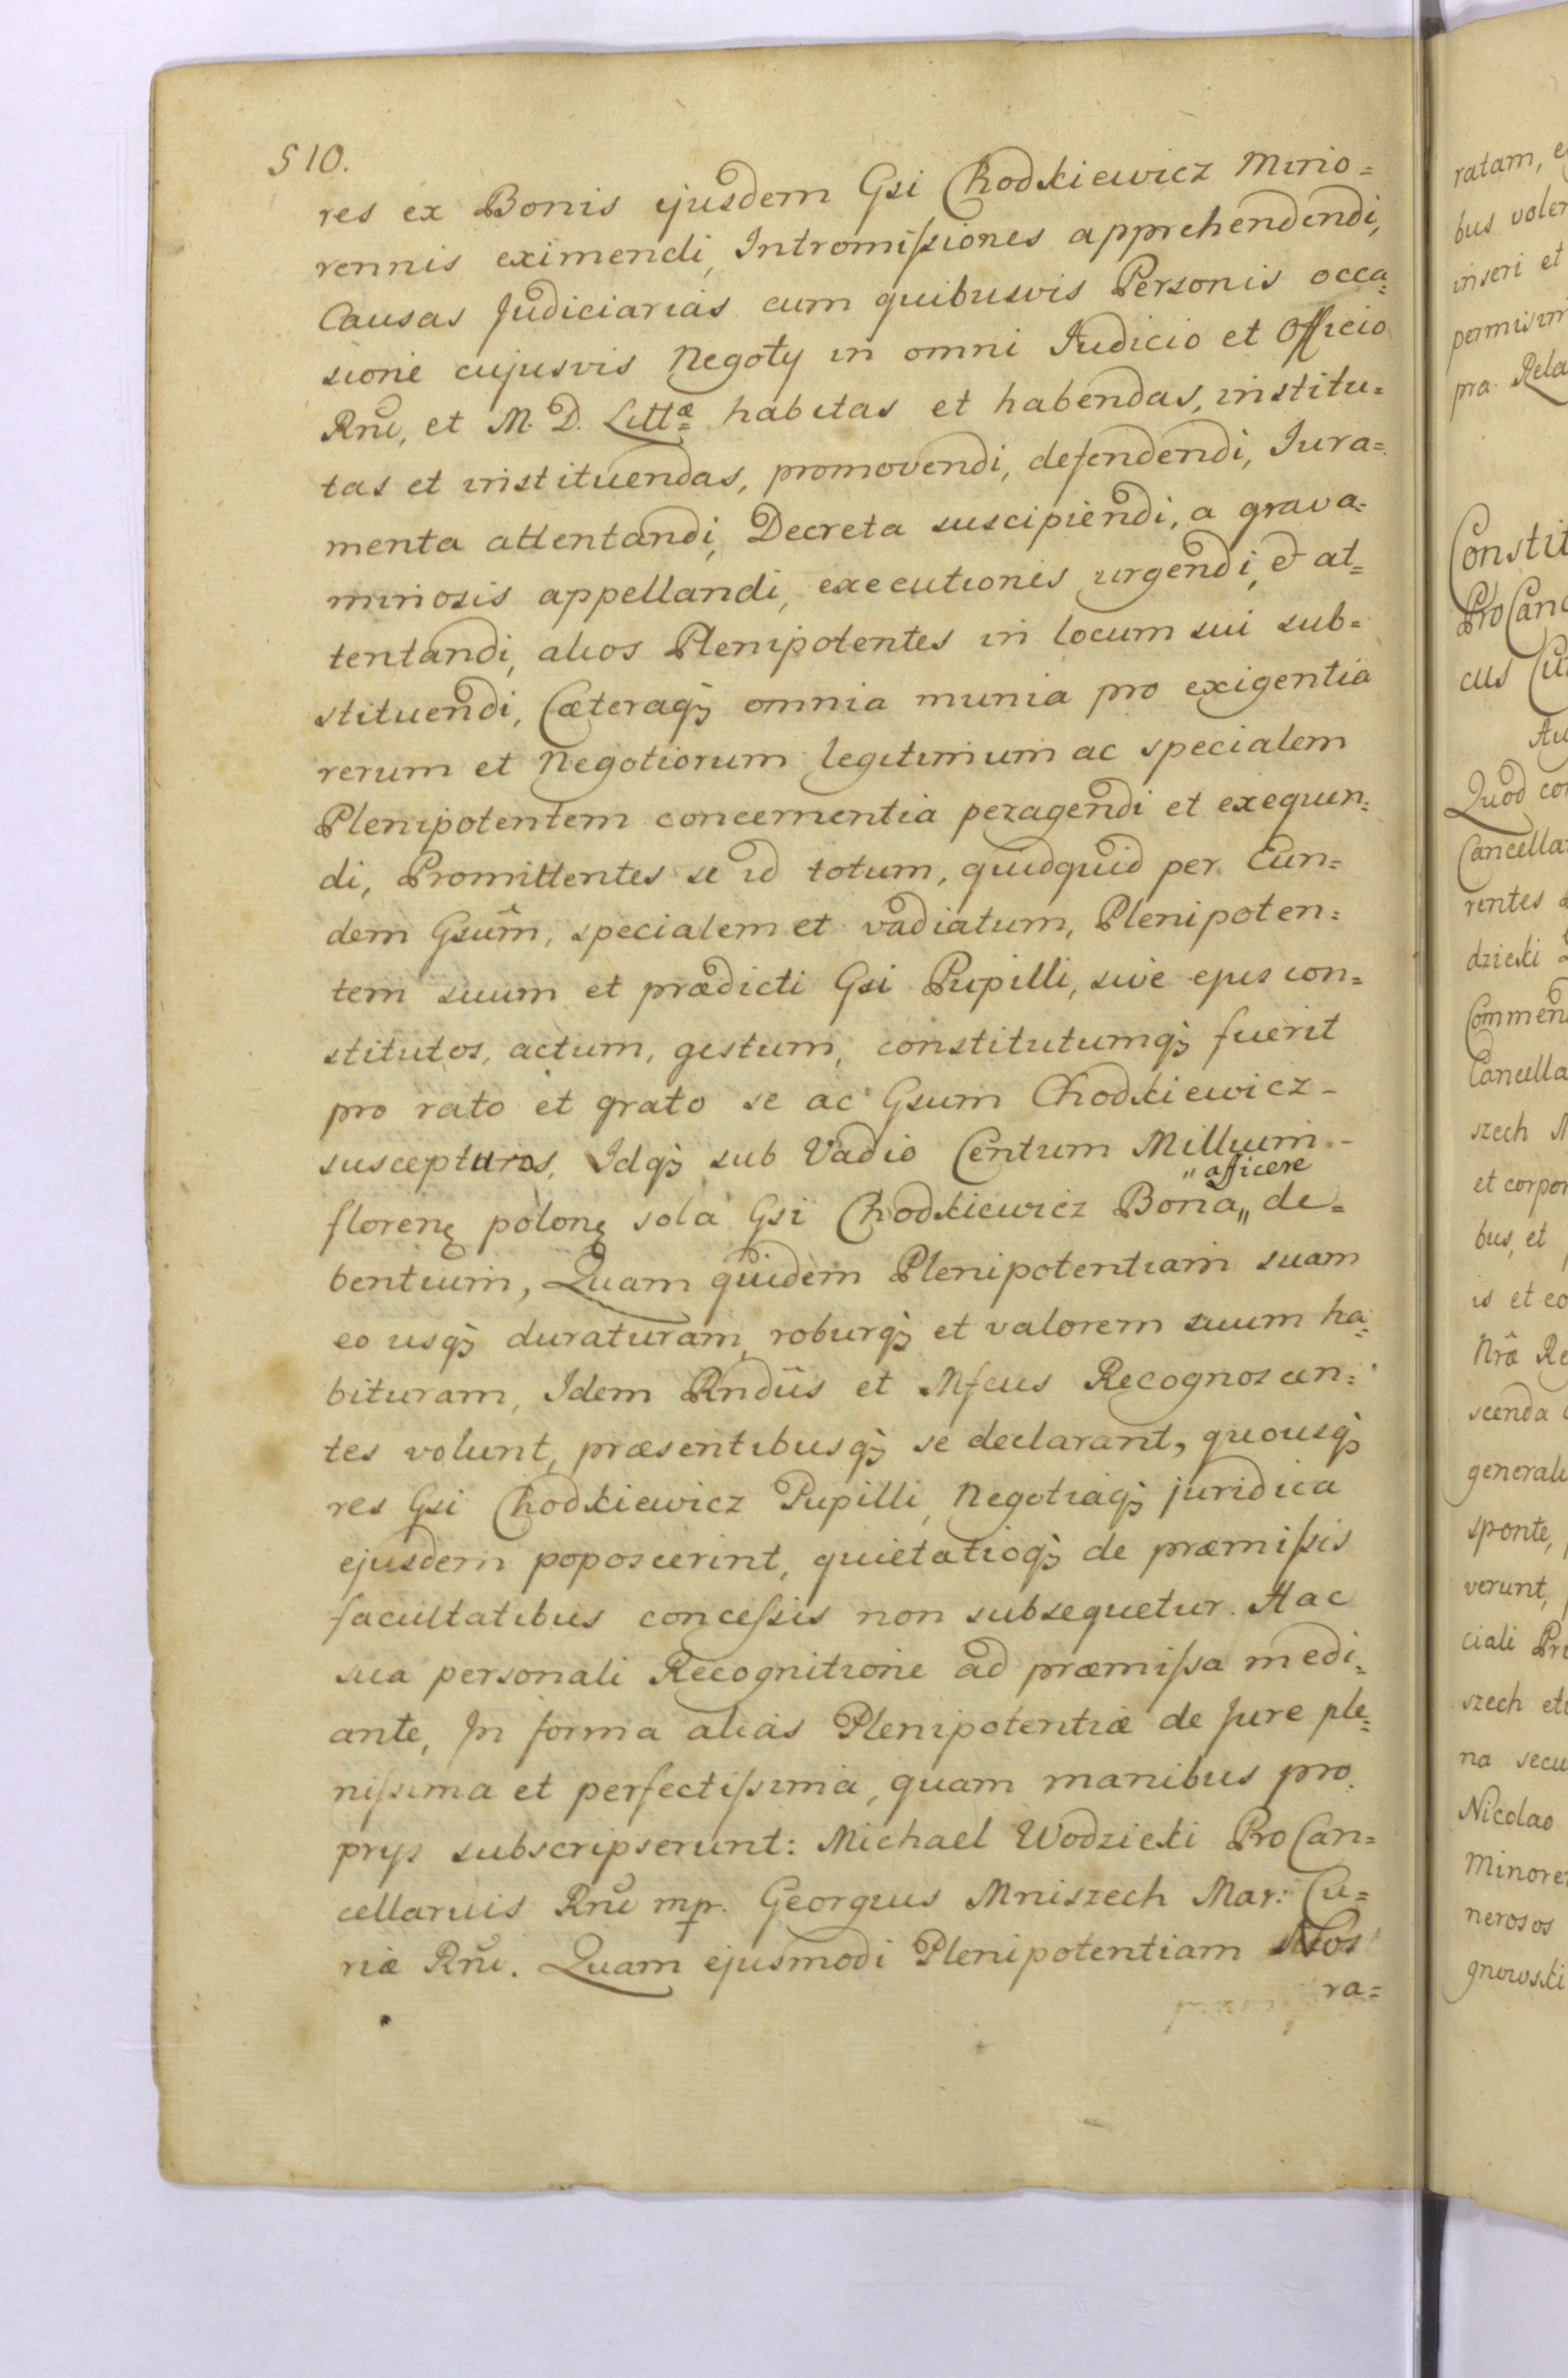 510.
res ex Bonis ejusdem Gsi Chodkiewicz Mino=
rennis eximendi, Intromissiones apprehendendi,
Causas Judiciarias cum quibusvis Personis occa=
sione cujusvis Negoty in omni Judicio et Officio
Rnĩ, et M. D. Littæ habitas et habendas, institu=
tas et instituendas, promovendi, defendendi, Jura=
menta attentandi, Decreta suscipiendi, a grava=
minosis appellandi, executiones urgendi, & at=
tentandi, alios Plenipotentes in locum sui sub=
stituendi, Cæteraqȝ omnia munia pro exigentia
rerum et Negotiorum legitimum ac specialem
Plenipotentem concernentia peragendi et exequen=
di, Promittentes se id totum, quidquid per Eun=
dem Gsum̃, specialem et vadiatum, Plenipoten=
tem suum et prædicti Gsi Pupilli, sive ejus con=
stitutos, actum, gestum, constitutumqȝ fuerit
pro rato et grato se ac Gsum Chodkiewicz-
suscepturos, Idqȝ sub Vadio Centum Millium.-
"afficere
florenȩ polonȩ sola Gsi Chodkiewicz Bona,, de=
bentium, Quam quidem Plenipotentiam suam
eo usqȝ duraturam, roburqȝ et valorem suum ha=
bituram, Idem Rndus et Mfcus Recognoscen=
tes volunt, præsentibusqȝ se declarant, quousqȝ
res Gsi Chodkiewicz Pupilli, Negotiaqȝ juridica
ejusdem poposcerint, quietatioqȝ de præmissis
facultatibus concessis non subsequetur. Hac
sua personali Recognitione ad præmissa medi=
ante, In forma alias Plenipotentiæ de Jure ple=
nissima et perfectissima, quam manibus pro
prys subscripserunt: Michael Wodzicki ProCan=
cellarius Rnĩ mpr. Georgius Mniszech Mar: Cu=
riæ Rnĩ. Quam ejusmodi Plenipotentiam Nos
ra=
ratam, e
bus volen
inseri et
permisim
pra. Rela
Constit
ProCanc
cus Cur
Quod con
Cancellar
rentes
dzicki
Commend
Cancella
szech M
et corpor
bus, et
is et eo
Nrã Re
scenda
generali
sponte,
verunt,
ciali Pr
szech et
na secu
Nicolao
Minore
nerosos
gnowski